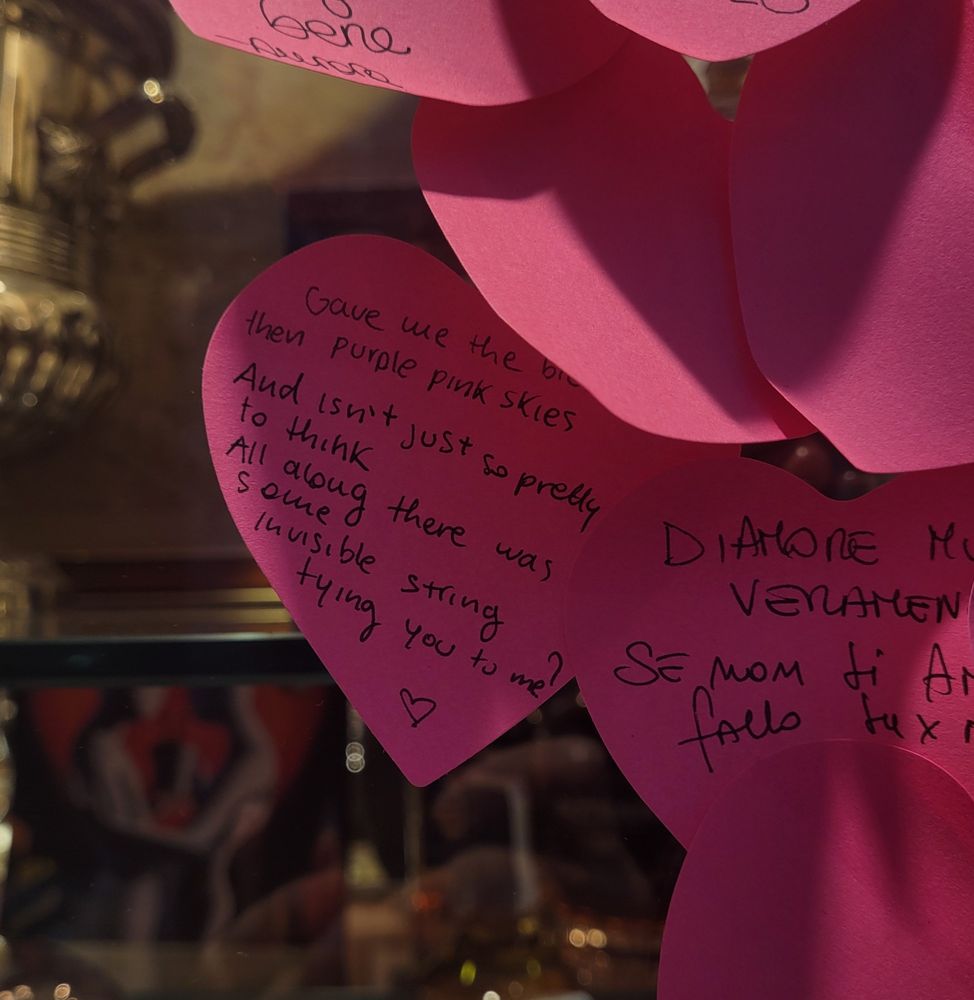 Gene
Aurora
Gave me the
then purple pink skies
And isn't just so pretty
to think
All along there was
some
invisible string
tying you to me?
DIAMORE
SE NON ti
fallo